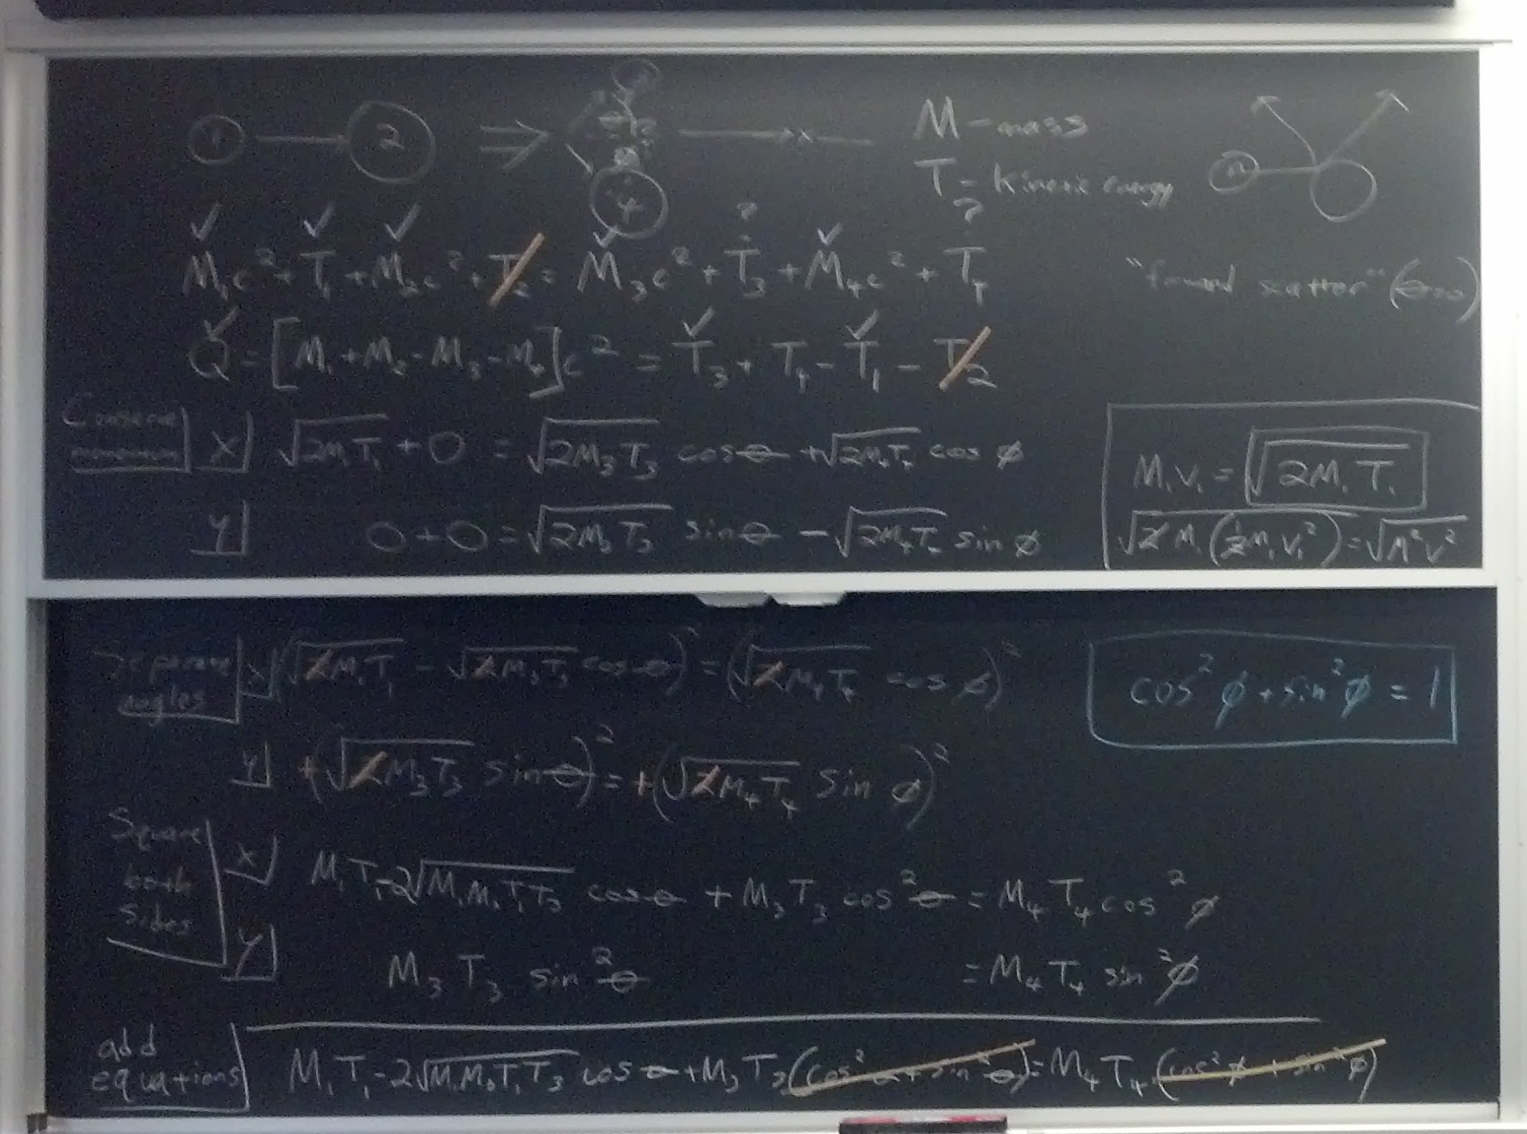 1 2 4 M - mass
T - Kinetic energy
M₁c² + T₁ + M₂c² + T₂ = M₃c² + T₃ + M₄c² + T₄
? ?
"forward scatter" (θ=0)
Q = [M₁ + M₂ - M₃ - M₄]c² = T₃ + T₄ - T₁ - T₂
Conserve momentum
x √2M₁T₁ + 0 = √2M₃T₃ cos θ + √2M₄T₄ cos φ
y 0 + 0 = √2M₃T₃ sin θ - √2M₄T₄ sin φ
M₁V₁ = √2M₁T₁
√2M₁(½M₁V₁²) = √M²V²
Separate angles
x (√2M₁T₁ - √2M₃T₃ cos θ)² = (√2M₄T₄ cos φ)²
cos²φ + sin²φ = 1
y +(√2M₃T₃ sin θ)² = +(√2M₄T₄ sin φ)²
Square both sides
x M₁T₁ - 2√M₁M₃T₁T₃ cos θ + M₃T₃ cos²θ = M₄T₄ cos²φ
y M₃T₃ sin²θ = M₄T₄ sin²φ
add equations
M₁T₁ - 2√M₁M₃T₁T₃ cos θ + M₃T₃(cos²θ + sin²θ) = M₄T₄(cos²φ + sin²φ)